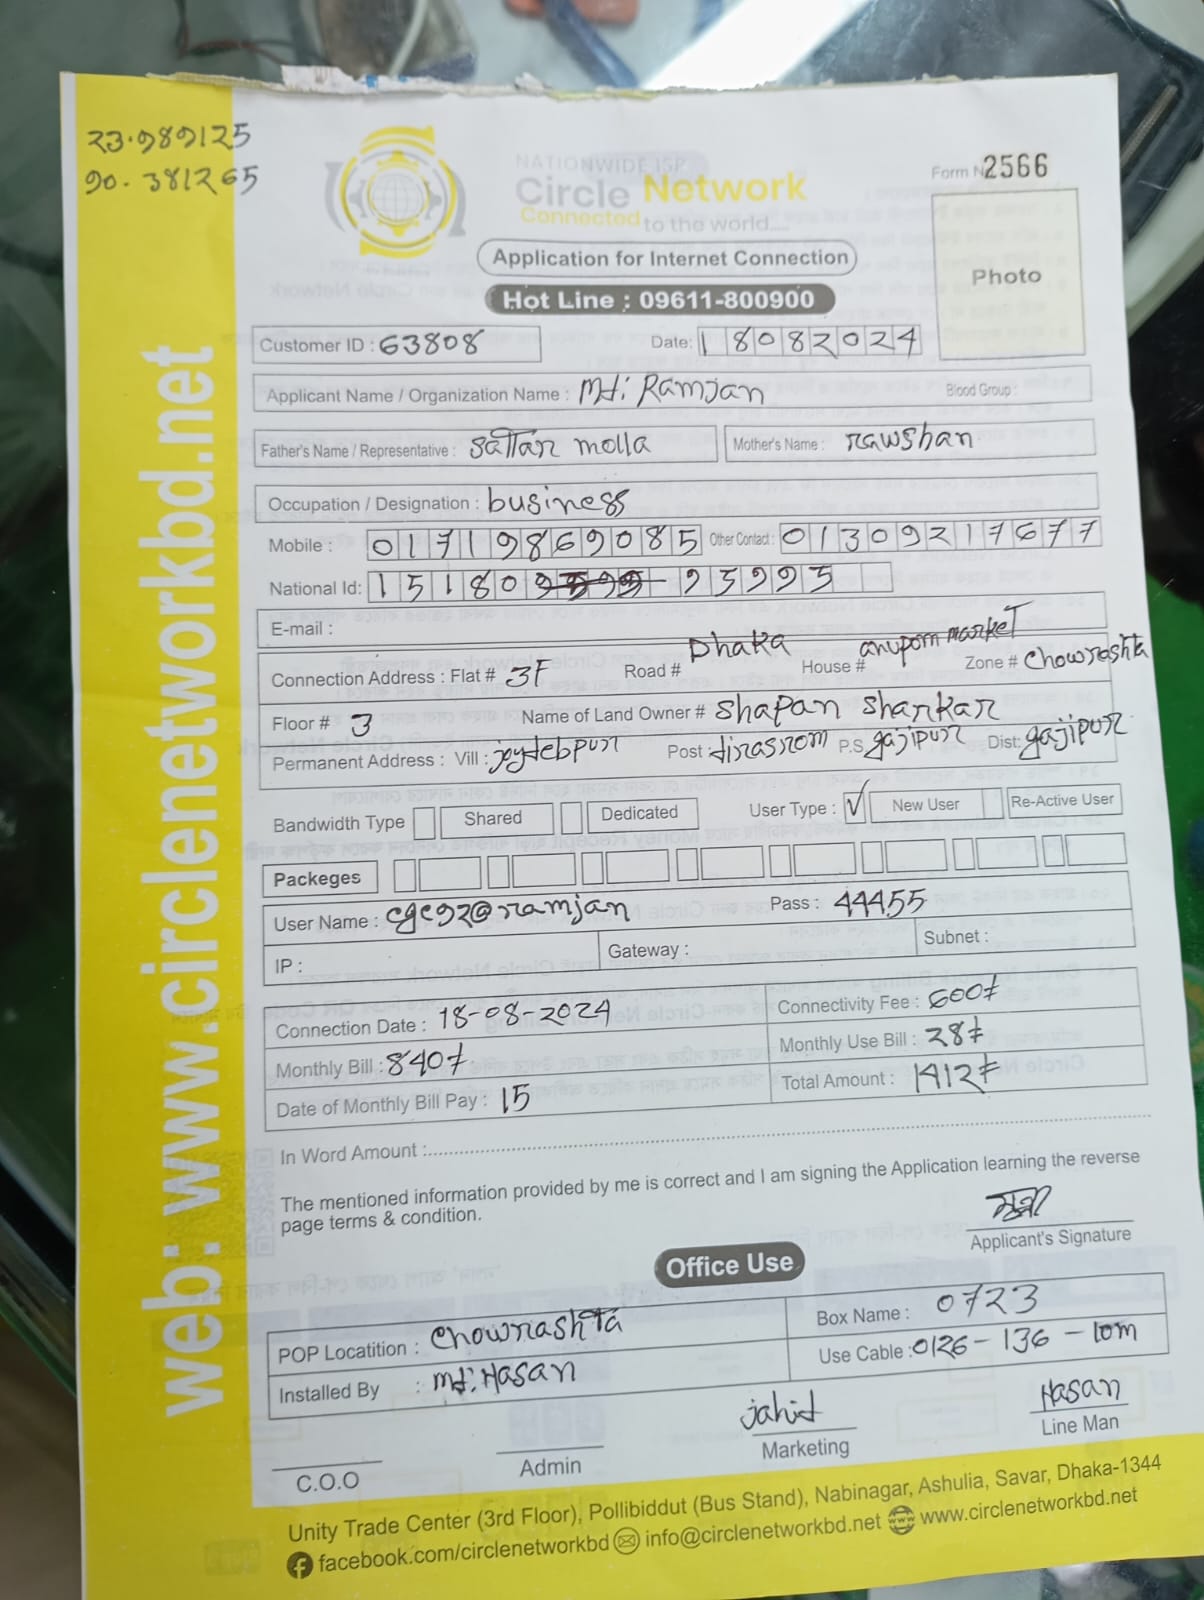 23.989125
90.381265
NATIONWIDE ISP
Circle Network
Connected to the world....
Form N 2566
Photo
Application for Internet Connection
Hot Line : 09611-800900
Customer ID : 63808
Date: 18082024
Applicant Name / Organization Name : Md: Ramjan
Blood Group :
Father's Name / Representative : Sattar molla
Mother's Name : rawshan
Occupation / Designation : business
Mobile : 01719869085 Other Contact : 01309217677
National Id: 151809 95995
E-mail :
Connection Address : Flat # 3F Road # Dhaka House # anupom market Zone # Chowrashta
Floor # 3 Name of Land Owner # Shapan Sharkar
Permanent Address : Vill : joydebpur Post : tirasrom P.S gajipur Dist: gajipur
Bandwidth Type Shared Dedicated User Type : ✓ New User Re-Active User
Packeges
User Name : cgc92@ramjan Pass : 44455
IP : Gateway : Subnet :
Connection Date : 18-08-2024 Connectivity Fee : 600/=
Monthly Bill : 840/= Monthly Use Bill : 28/=
Date of Monthly Bill Pay : 15 Total Amount : 1412/=
In Word Amount :
The mentioned information provided by me is correct and I am signing the Application learning the reverse
page terms & condition.
Applicant's Signature
Office Use
POP Locatition : Chowrashta Box Name : 0723
Installed By : Md: Hasan Use Cable : 0126-136-10m
jahid Hasan
C.O.O Admin Marketing Line Man
Unity Trade Center (3rd Floor), Pollibiddut (Bus Stand), Nabinagar, Ashulia, Savar, Dhaka-1344
facebook.com/circlenetworkbd info@circlenetworkbd.net www.circlenetworkbd.net
web: www.circlenetworkbd.net